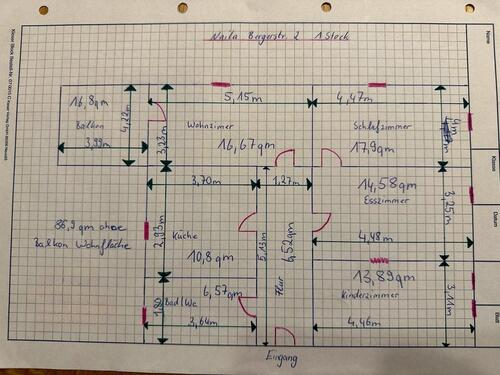 Naila Bergerstr. 2 1 Stock
Name
5,15m
4,47m
16,8qm
4,22m
Balkon
3,99m
3,23m
Wohnzimer
16,67qm
Schlafzimmer
17,9qm
4m
Klasse
3,70m
1,27m
14,58qm
Esszimmer
3,25m
Datum
86,9 qm ohne
Balkon Wohnfläche
2,93m
Küche
10,8qm
5,13m
6,52qm
4,48m
13,89qm
Kinderzimmer
3,11m
6,57qm
Bad/Wc
3,64m
Flur
4,46m
Blatt
Eingang